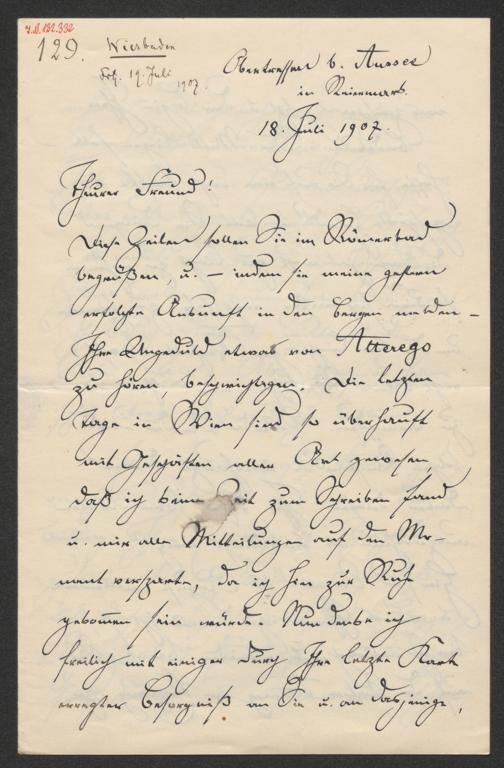 I.N. 132.332
129.
Wiesbaden
19. Juli
1907.
Obertressen b. Aussee
in Steiermark.
18. Juli 1907.
Theurer Freund!
Diese Zeilen sollen Sie im Römerbad
begrüßen, u. – indem sie meine gestern
erfolgte Ankunft in den Bergen melden –
Ihre Ungeduld etwas von Alterego
zu hören, beschwichtigen. Die letzten
Tage in Wien sind so überhäuft
mit Geschäften aller Art gewesen,
daß ich keine Zeit zum Schreiben fand
u. mir alle Mitteilungen auf den Mo-
ment versparte, da ich hier zur Ruhe
gekommen sein würde. Nun denke ich
freilich mit einiger durch Ihre letzte Karte
erregter Besorgniß an Sie u. an dasjenige,